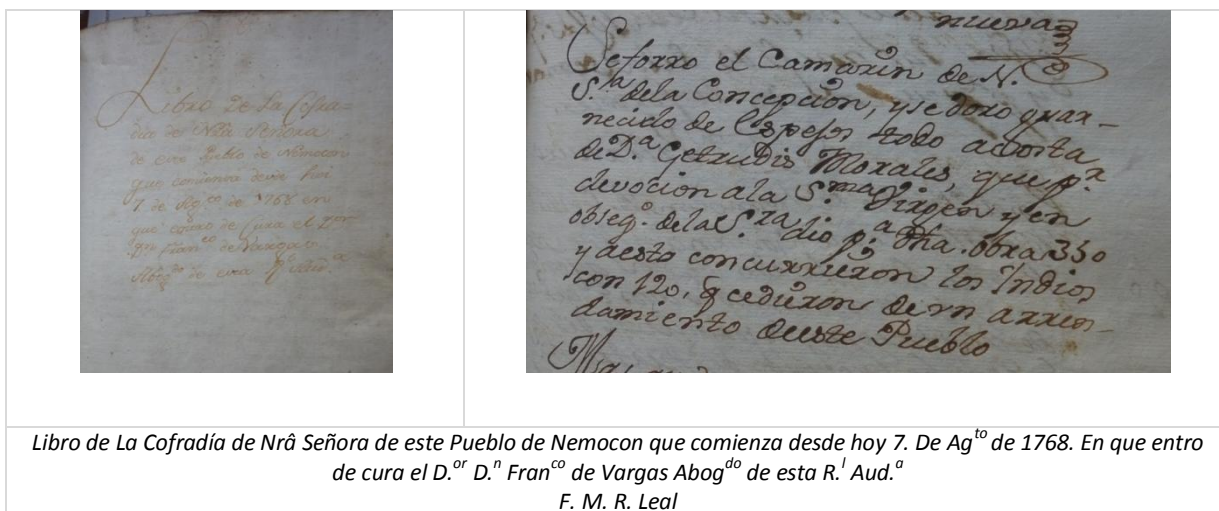 Libro de La Cofra=
dia de Nrâ Señora
de este Pueblo de Nemocon
que comienza desde hoi
7. de Ag.to de 1768 en
que entro de Cura el D.or
D.n Fran.co de Vargas
Abog.do de esta R.l Aud.a
nueva
Seforro el Camarin de N.
S.ra dela Concepcion, y se doro guar-
necido de Espejos todo acosta
de D.a Getrudis Morales, que p.r
devocion ala S.ma Virgen y en
obseq.o dela S.ra dio p.a dha. obra 350
y aesto concurrieron los Indios
con 120, q cedieron de vn arren-
damiento deeste Pueblo
Libro de La Cofradía de Nrâ Señora de este Pueblo de Nemocon que comienza desde hoy 7. De Ag^to de 1768. En que entro
de cura el D.^or D.^n Fran^co de Vargas Abog^do de esta R.^l Aud.^a
F. M. R. Leal